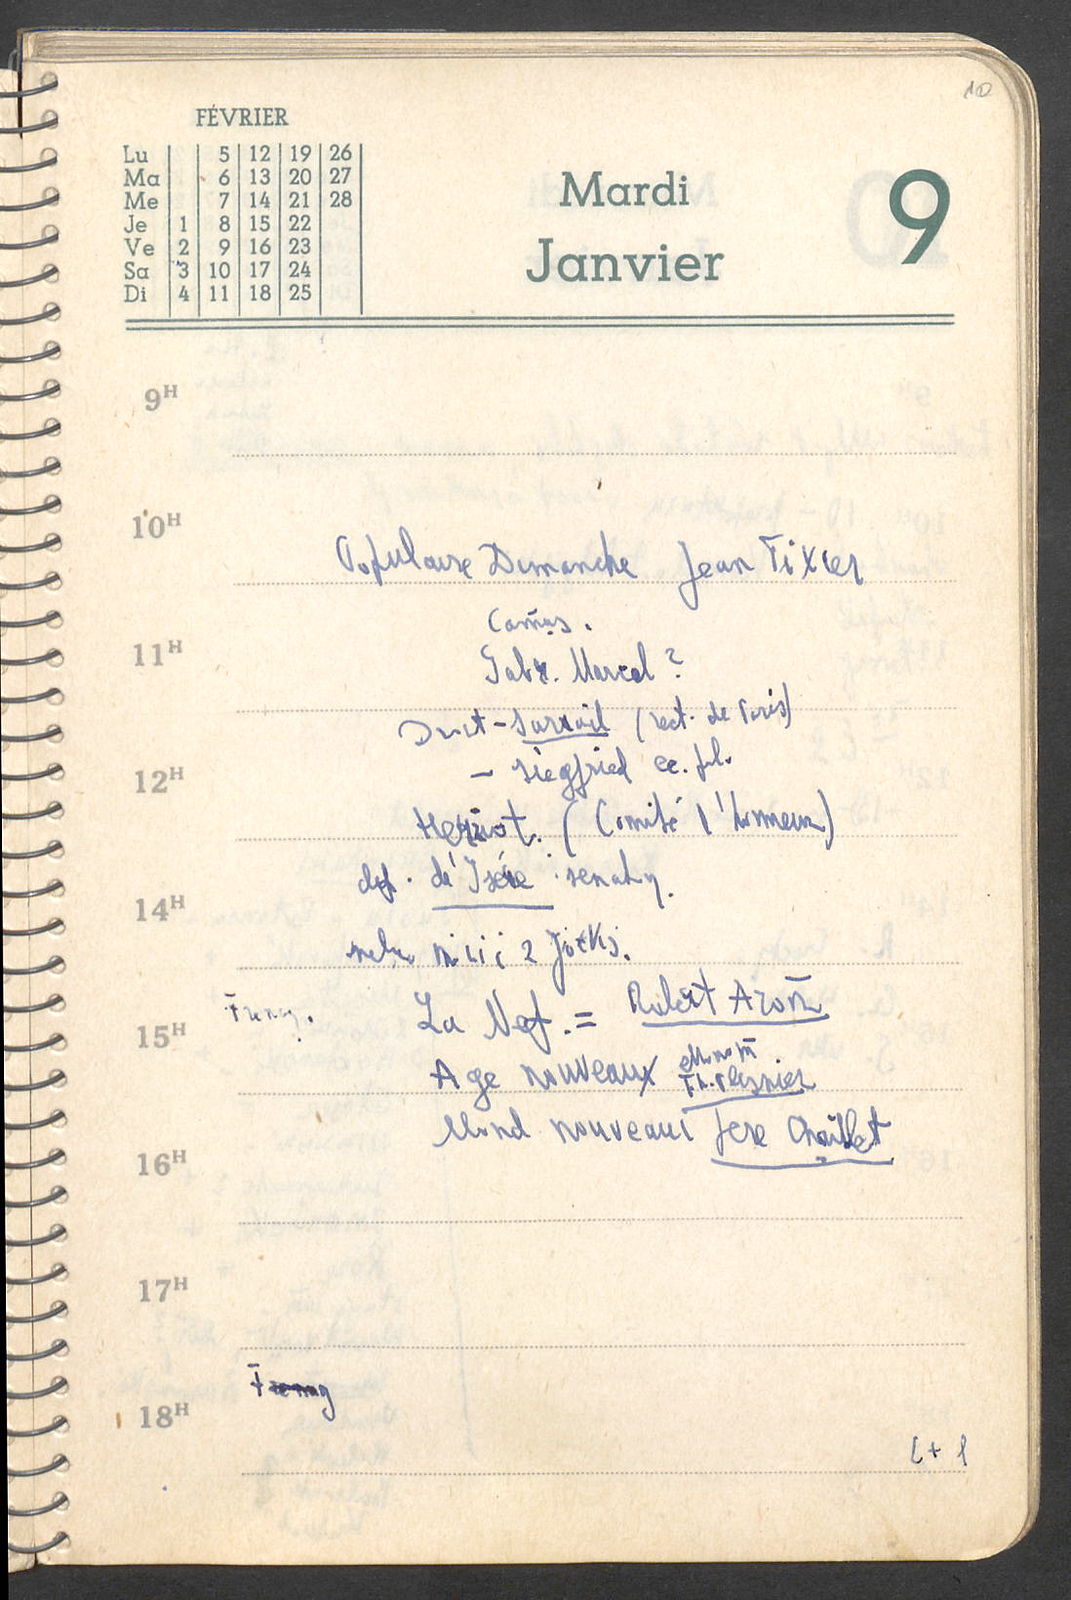 10
FÉVRIER
Lu 5 12 19 26
Ma 6 13 20 27
Me 7 14 21 28
Je 1 8 15 22
Ve 2 9 16 23
Sa 3 10 17 24
Di 4 11 18 25
Mardi 9
Janvier
9H
10H
Populaire Dimanche Jean Tixier
Camus.
11H
Gabr. Marcel ?
Droit - Sarrail (rect. de Paris)
12H
- Siegfried
Herriot. (Comité d'honneur)
de Isère
14H
Frenay.
La Nef. = Robert Aron
15H
Age nouveaux
Mond nouveaux Père Chaillet
16H
17H
Frenay
18H